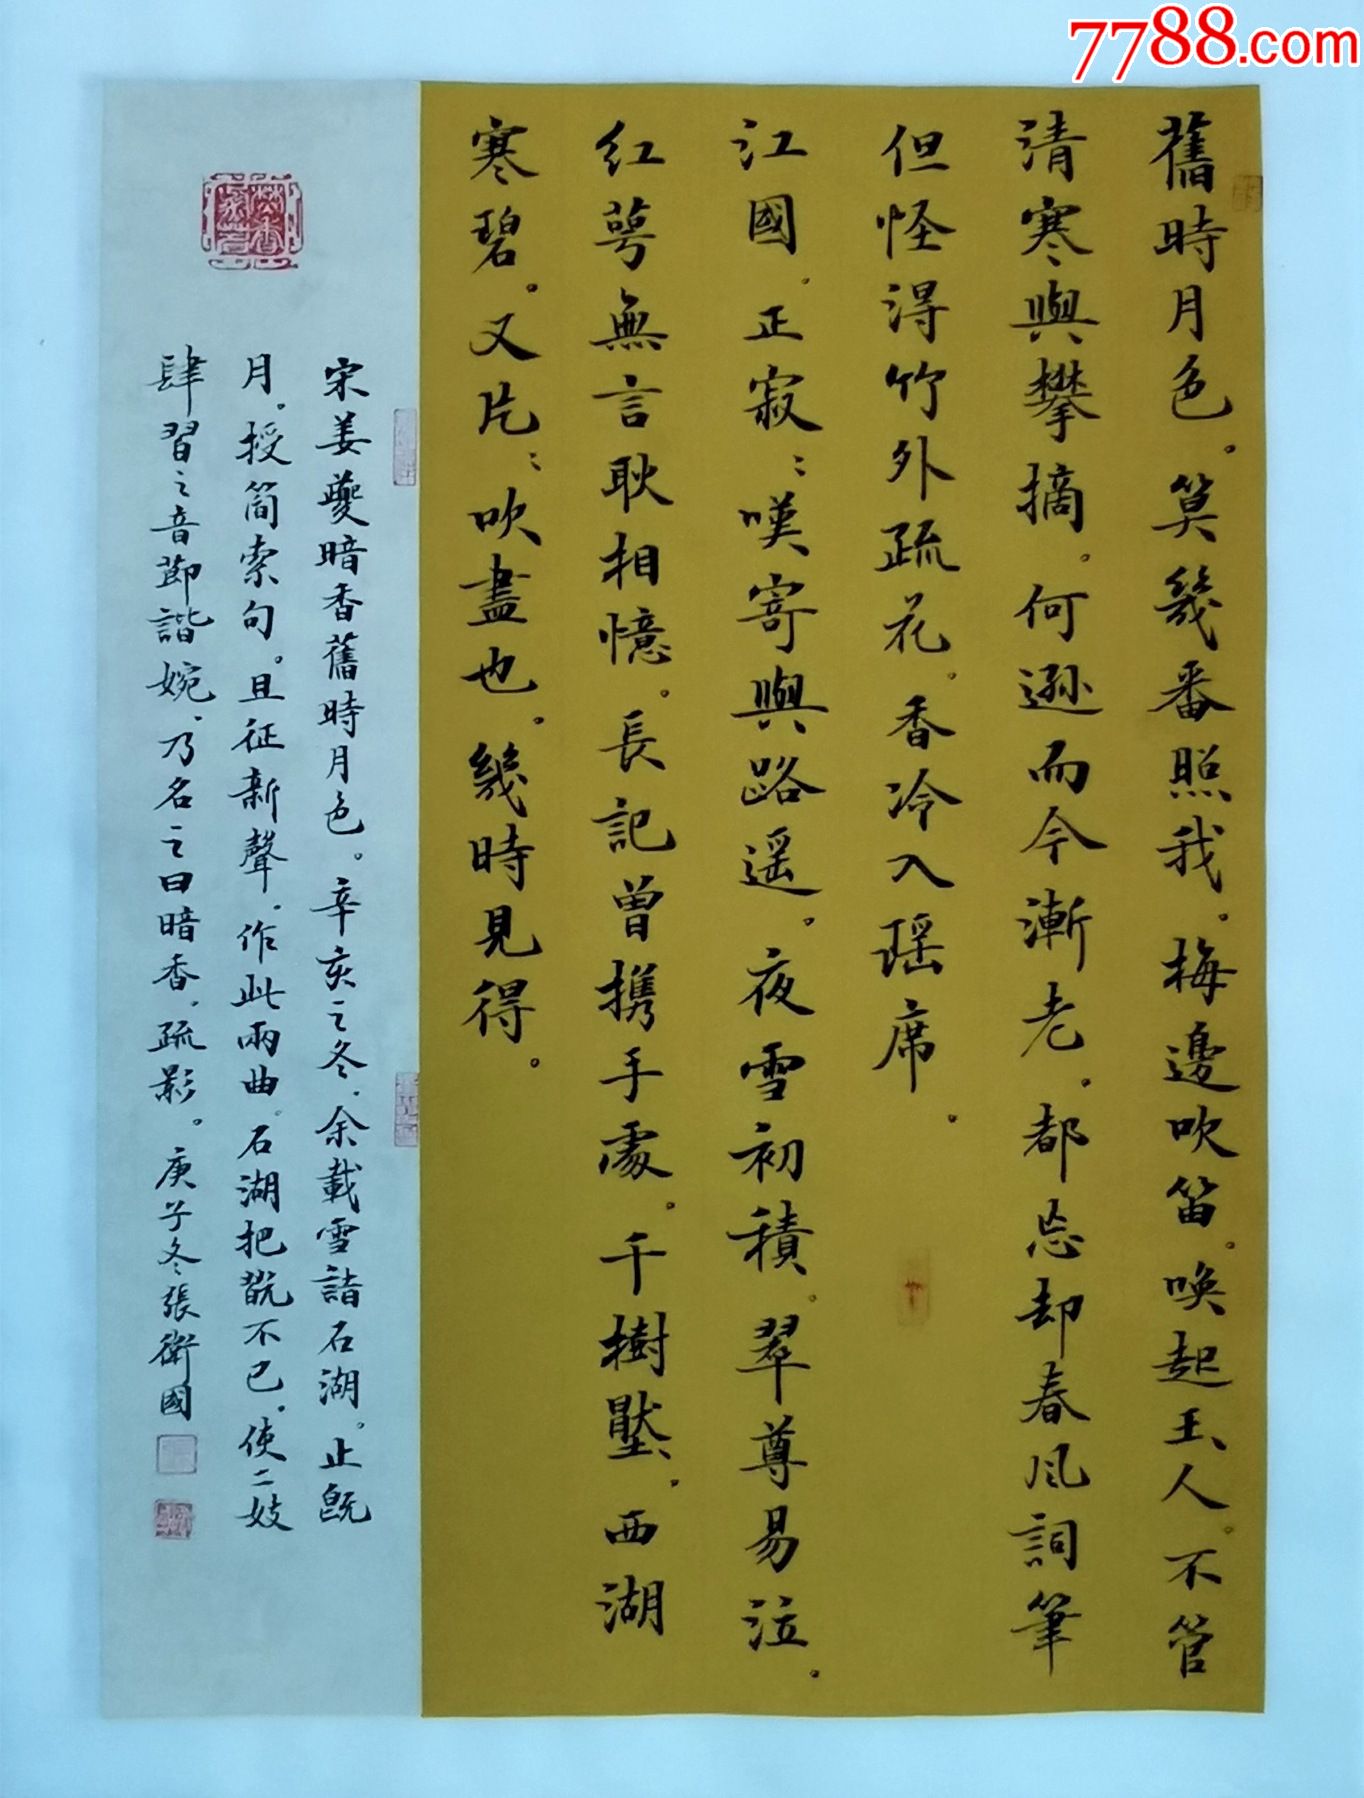 7788.com
舊時月色。算幾番照我。梅邊吹笛。喚起玉人。不管
清寒與攀摘。何遜而今漸老。都忘却春風詞筆
但怪淂竹外疏花。香冷入瑶席。
江國。正寂〻嘆寄與路遥。夜雪初積。翠尊易泣。
红萼無言耿相憶。長記曾携手處。千樹壓。西湖
寒碧。又片〻吹盡也。幾時見得。
宋姜夔暗香舊時月色。辛亥之冬。余載雪詣石湖。止既
月。授简索句。且征新聲。作此兩曲。石湖把翫不已。使二妓
肆習之音節諧婉。乃名之曰暗香。疏影。庚子冬張衛國